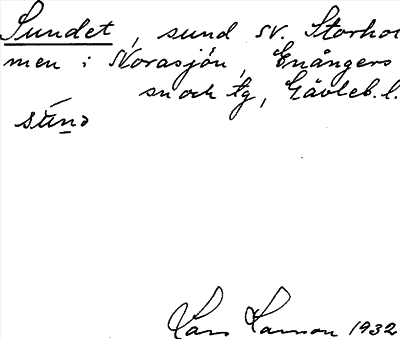 Sundet, sund sv. Storhol
men i Norasjön, Enångers
sn och tg, Gävleb. l.
Lars Larsson 1932